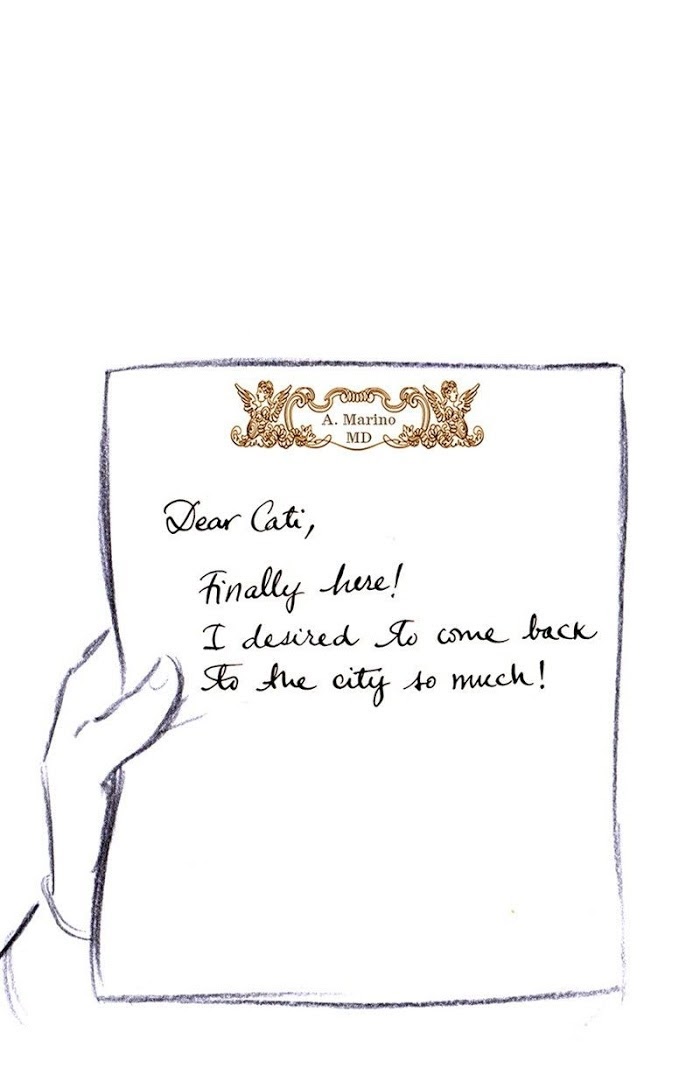 A. Marino
MD
Dear Cati,
Finally here!
I desired to come back
to the city so much!